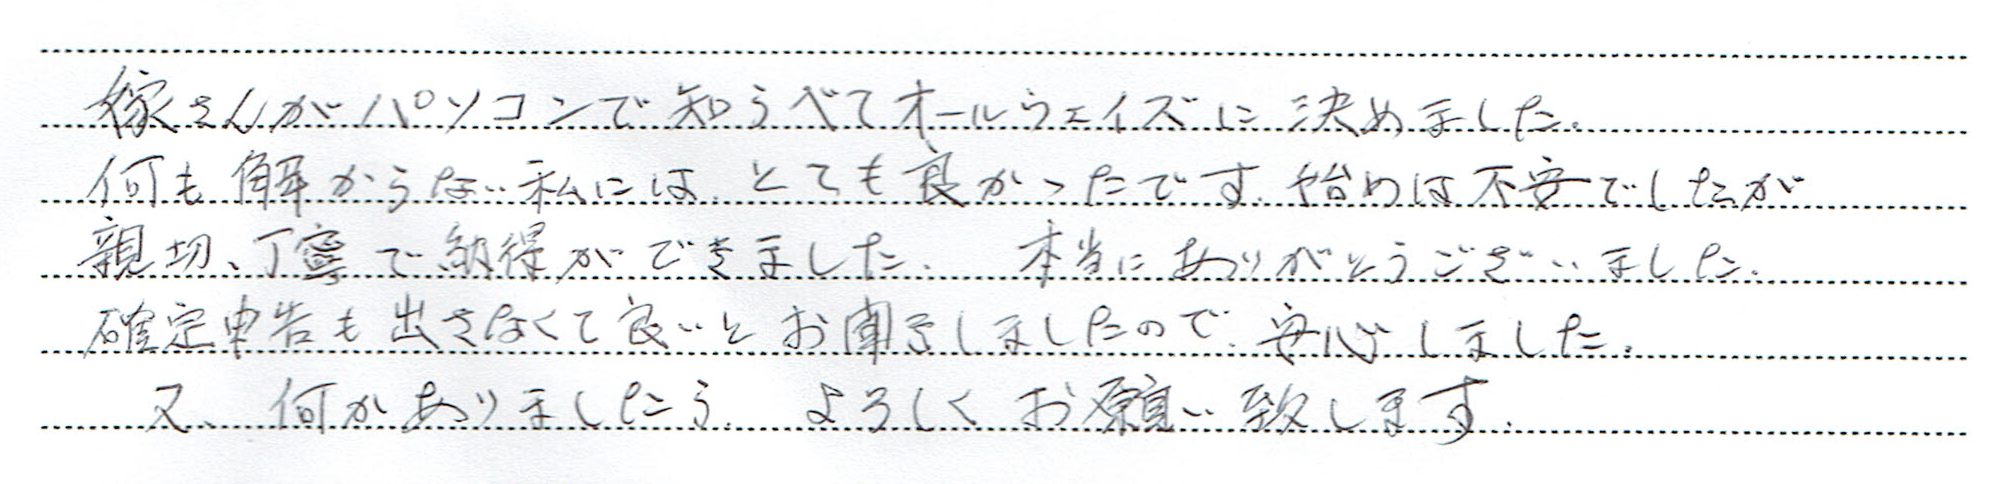 嫁さんがパソコンで知らべてオールウェイズに決めました。
何も解からない私には、とても良かったです。始めは不安でしたが
親切、丁寧で納得ができました。本当にありがとうございました。
確定申告も出さなくて良いとお聞きしましたので、安心しました。
又、何かありましたら、よろしくお願い致します。